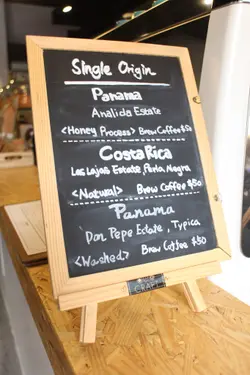 Single Origin
Panama
Analida Estate
<Honey Process> Brew Coffee $50
Costa Rica
Las Lajas Estate, Perla Negra
<Natural> Brew Coffee $50
Panama
Don Pepe Estate, Typica
<Washed> Brew Coffee $50
CRAFT